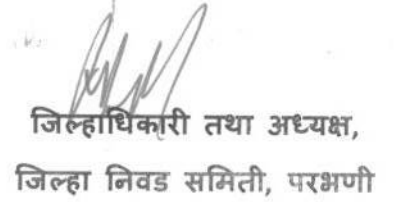 जिल्हाधिकारी तथा अध्यक्ष,
जिल्हा निवड समिती, परभणी